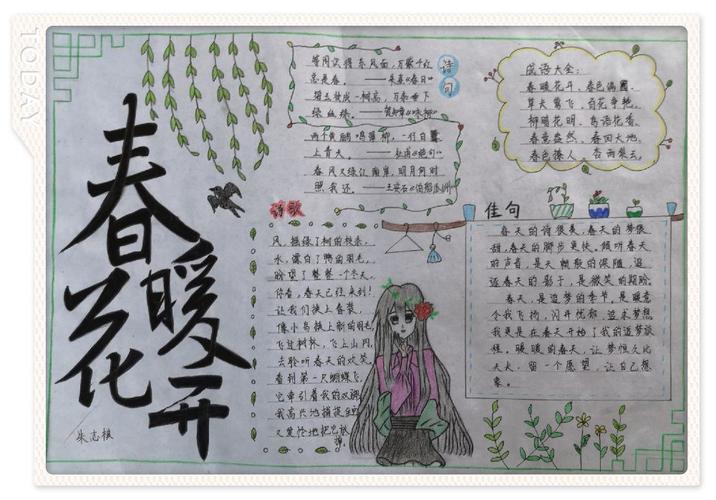 TODAY
春暖花开
朱志
诗句
等闲识得东风面，万紫千红
总是春。——朱熹《春日》
碧玉妆成一树高，万条垂下
绿丝绦。——贺知章《咏柳》
两个黄鹂鸣翠柳，一行白鹭
上青天。——杜甫《绝句》
春风又绿江南岸，明月何时
照我还。——王安石《泊船瓜洲》
成语大全：
春暖花开、春色满园、
草长莺飞、百花争艳、
柳暗花明、鸟语花香、
春意盎然、春回大地、
春色撩人、杏雨梨云。
诗歌
风，摇绿了树的枝条，
水，漂白了鸭的羽毛，
盼望了整整一个冬天，
你看，春天已经来到！
让我们换上春装，
像小鸟换上新的羽毛，
飞过树林，飞上山冈，
去聆听春天的欢笑。
看到第一只蝴蝶飞，
它牵引着我的双脚，
我高兴地捕捉住它，
又爱怜地把它放
佳句
春天的诗很美，春天的梦很
甜，春天的脚步更快。倾听春天
的声音，是天
春天的影子，是微笑的
春天，是追梦的季节，是
个我飞扬，闪开忧郁，追求梦想
我更是在春天开始了我的追梦旅
程。暖暖的春天，让梦恒久比
天大，留一个愿望，让自己想
象。